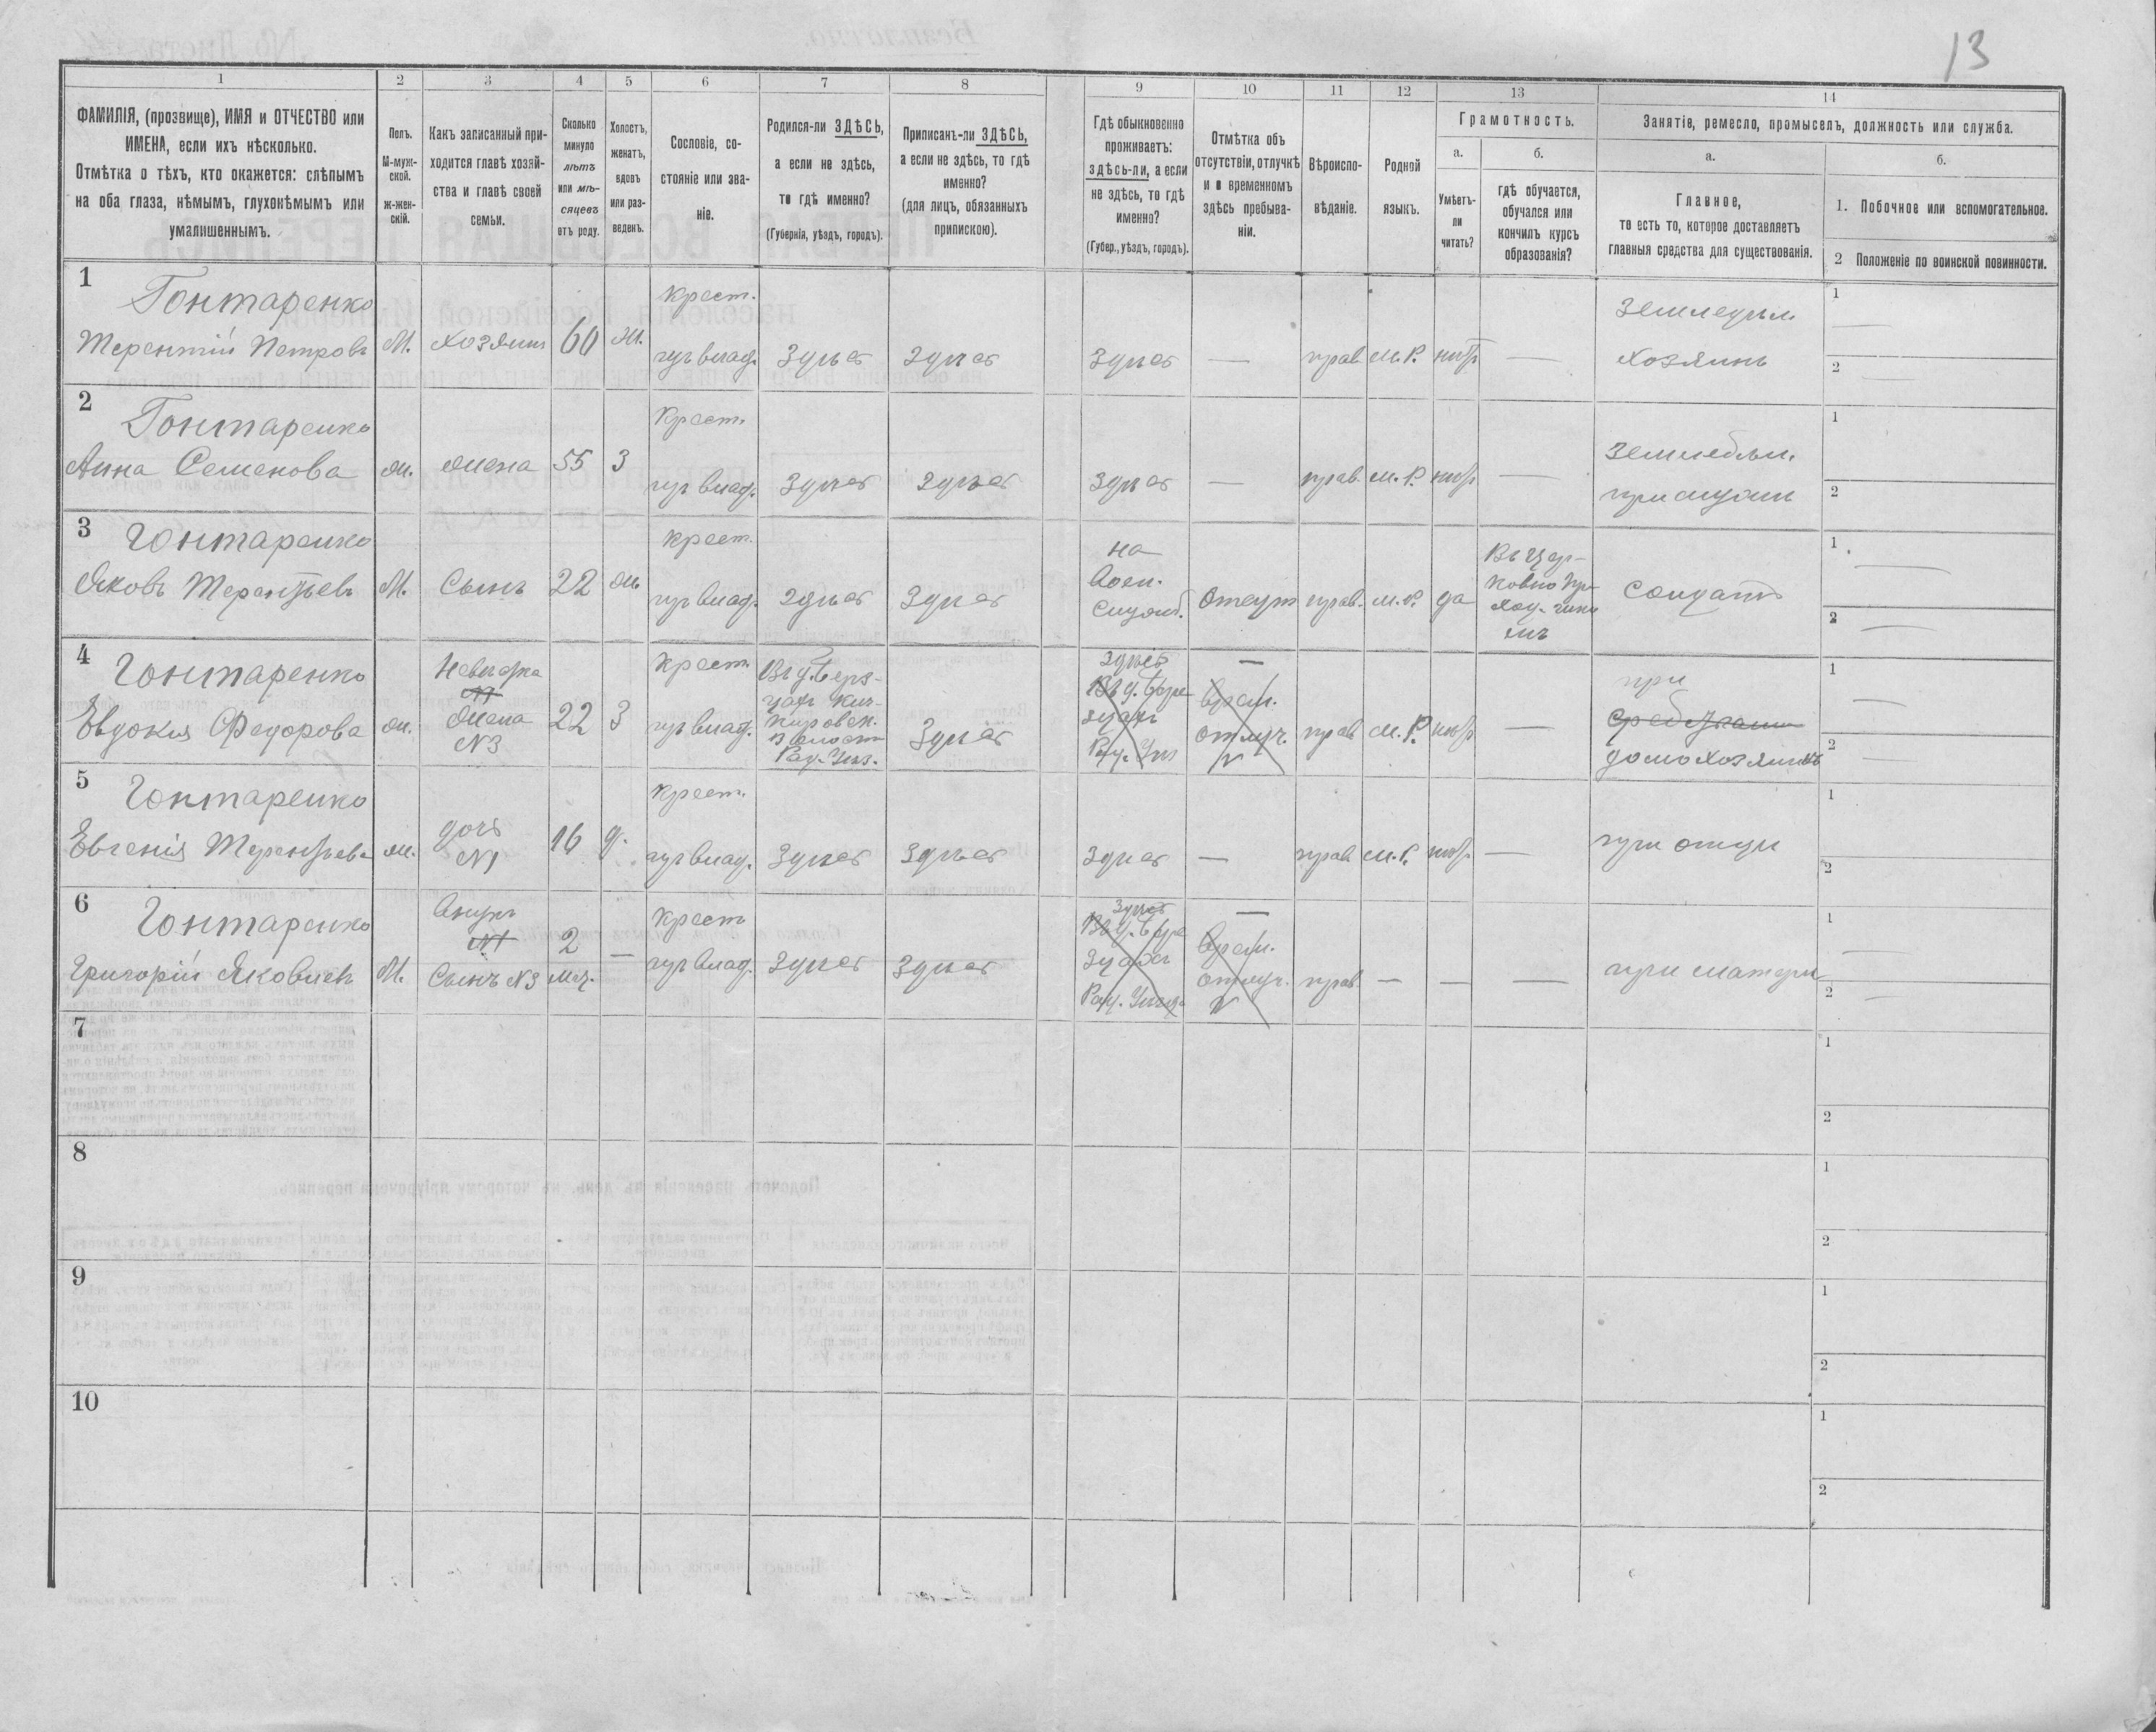 13
1 2 3 4 5 6 7 8 9 10 11 12 13 14
ФАМИЛІЯ, (прозвище), ИМЯ и ОТЧЕСТВО или
ИМЕНА, если ихъ нѣсколько.
Отмѣтка о тѣхъ, кто окажется: слѣпымъ
на оба глаза, нѣмымъ, глухонѣмымъ или
умалишеннымъ.
Полъ.
М-муж-
ской.
ж-жен-
скій.
Какъ записанный при-
ходится главѣ хозяй-
ства и главѣ своей
семьи.
Сколько
минуло
лѣтъ
или мѣ-
сяцевъ
отъ роду.
Холостъ,
женатъ,
вдовъ
или раз-
веденъ.
Сословіе, со-
стояніе или зва-
ніе.
Родился-ли ЗДѢСЬ,
а если не здѣсь,
то гдѣ именно?
(Губернія, уѣздъ, городъ).
Приписанъ-ли ЗДѢСЬ,
а если не здѣсь, то гдѣ
именно?
(для лицъ, обязанныхъ
припискою).
Гдѣ обыкновенно
проживаетъ:
здѣсь-ли, а если
не здѣсь, то гдѣ
именно?
(Губер., уѣздъ, городъ).
Отмѣтка объ
отсутствіи, отлучкѣ
и о временномъ
здѣсь пребыва-
ніи.
Вѣроиспо-
вѣданіе.
Родной
языкъ.
Грамотность.
а.
Умѣетъ-
ли
читать?
б.
гдѣ обучается,
обучался или
кончилъ курсъ
образованія?
Занятіе, ремесло, промыселъ, должность или служба.
а.
Главное,
то есть то, которое доставляетъ
главныя средства для существованія.
б.
1. Побочное или вспомогательное.
2 Положеніе по воинской повинности.
1
Гонтаренко
Терентій Петровъ М. хозяинъ 60 ж.
крест.
влад. Здѣсь Здѣсь Здѣсь — прав м.р. —
хозяинъ
1 —
2 —
2
Гонтаренко
Анна Семенова ж. жена 55 З
Крест.
влад. Здѣсь Здѣсь Здѣсь — прав. м.р. —
при мужѣ
1
2
3
Гонтаренко
Яковъ Терентьевъ М. Сынъ 22 ж
крест.
влад. Здѣсь Здѣсь
на
воен.
Служб. Отсут прав. м.р. да
Въ Цер-
ковно При-
ход.
Солдатъ
1 —
2 —
4
Гонтаренко
Евдокія Федорова ж.
Невѣстка
№1
Жена
№3
22 З
крест.
влад.
Здѣсь
Здѣсь
—
Врем.
отлуч.
прав м.р. —
при
домохозяинѣ
1 —
2 —
5
Гонтаренко
Евгенія Терентьева ж.
дочь
№1
16 д.
крест.
влад. Здѣсь Здѣсь Здѣсь — прав м.р. —
при отцѣ
1
2
6
Гонтаренко
Григорій Яковлевъ М.
Внукъ
№1
Сынъ №3
2
мѣс.
—
крест
влад. Здѣсь Здѣсь
Здѣсь
—
Врем.
отлуч.
прав. — — —
при матери
1 —
2 —
7
1
2
8
1
2
9
1
2
10
1
2